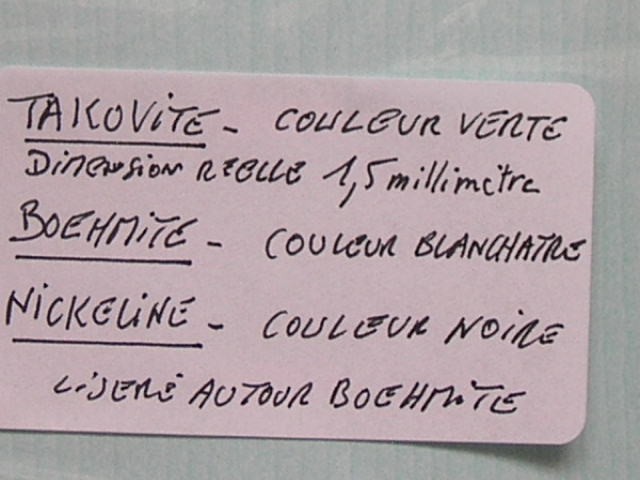 TAKOVITE - COULEUR VERTE
DIMENSION REELLE 1,5 millimètre
BOEHMITE - COULEUR BLANCHATRE
NICKELINE - COULEUR NOIRE
LISERÉ AUTOUR BOEHMITE